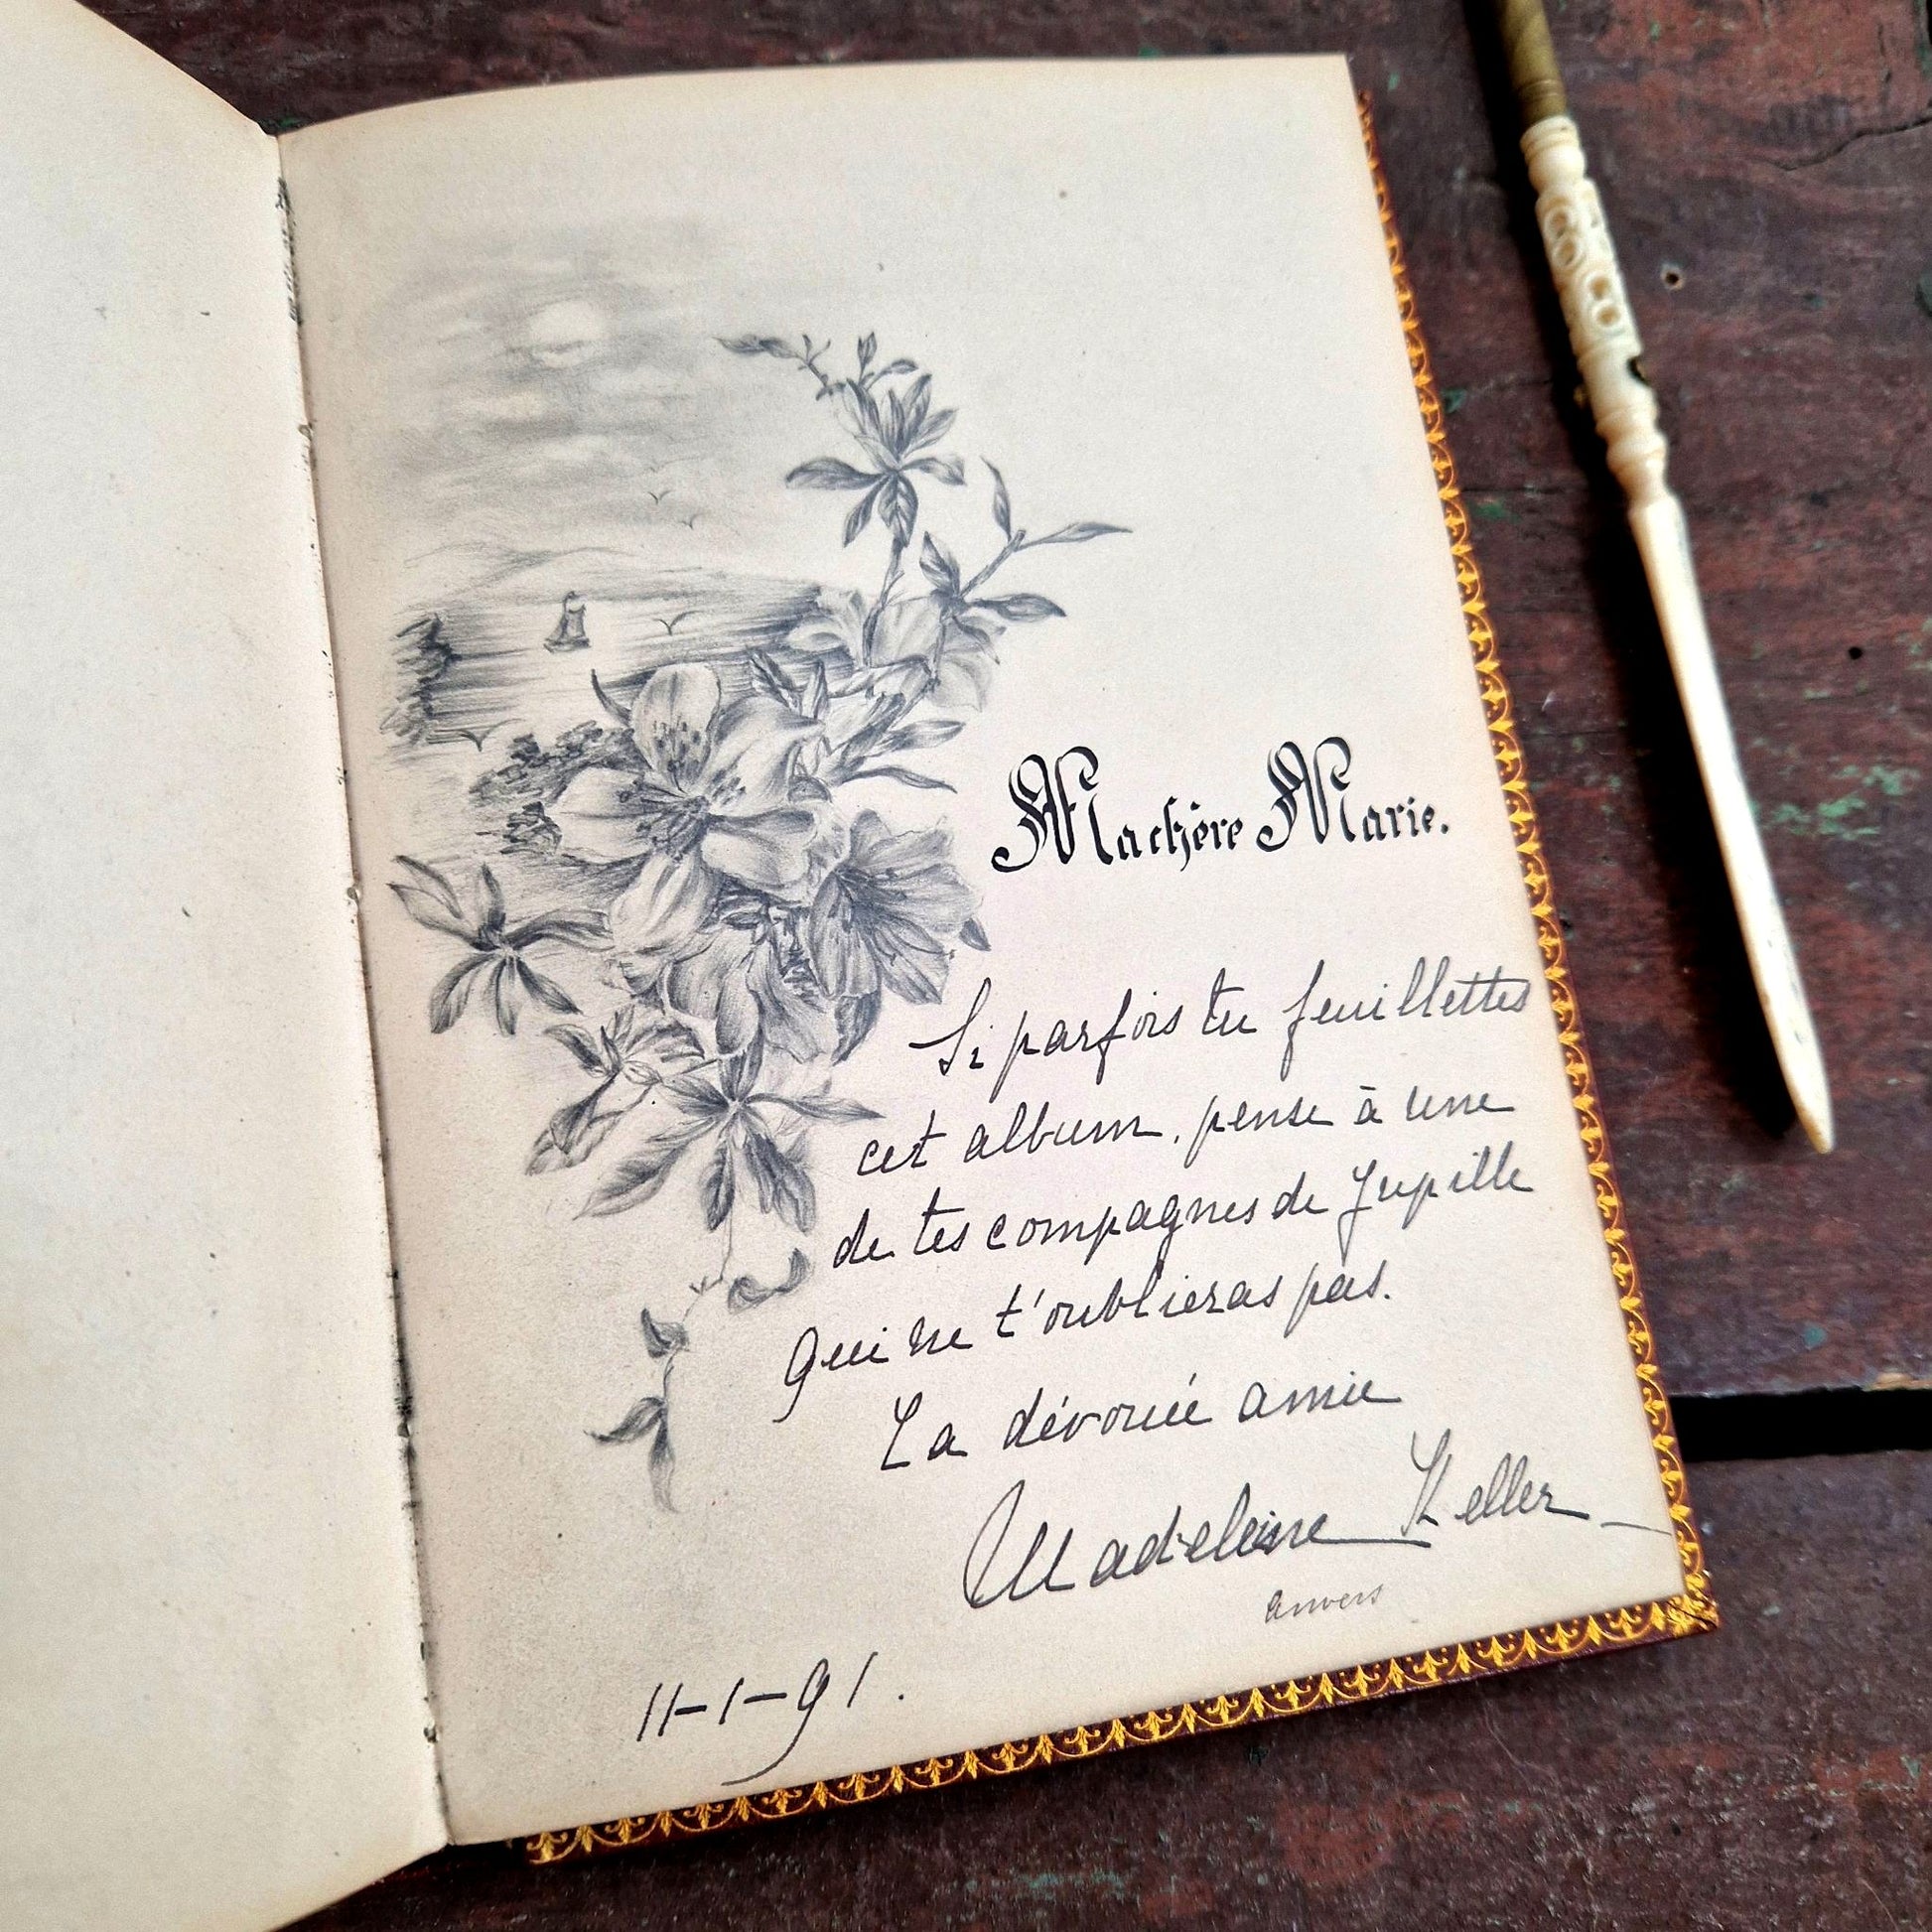 Ma chère Marie.
Si parfois tu feuillettes
cet album, pense à une
de tes compagnes de Jupille
qui ne t'oublieras pas.
Ta dévouée amie
Madeleine Keller
Anvers
11-1-91.